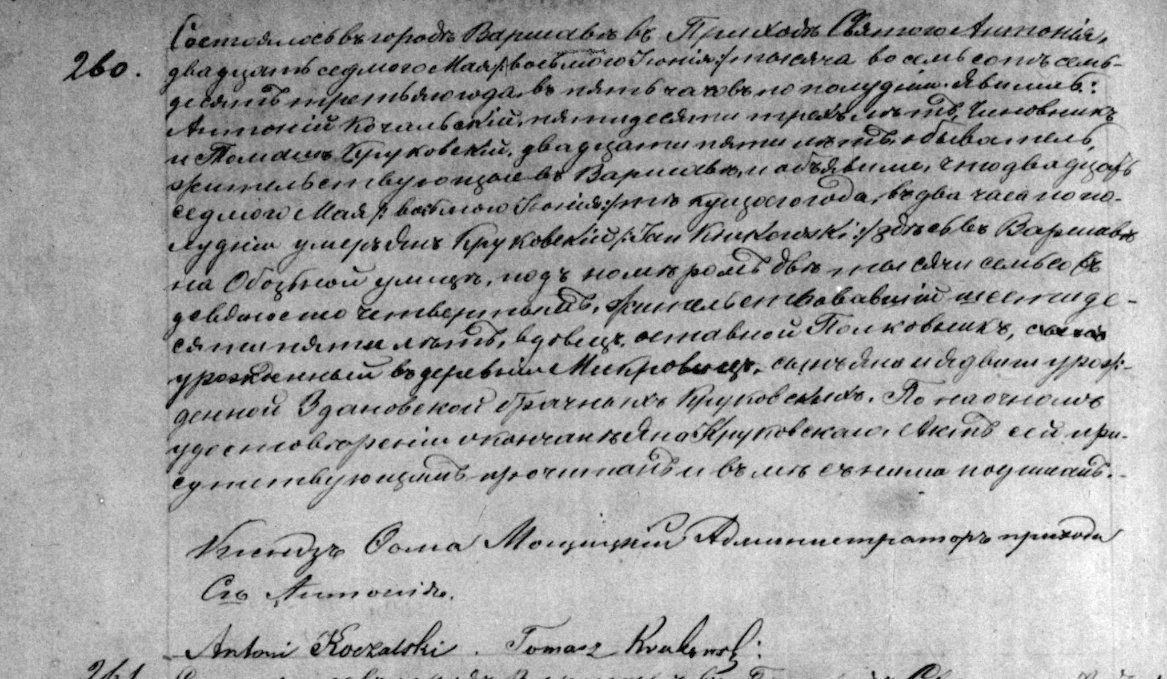 Состоялось въ городѣ Варшавѣ въ Приходѣ Святого Антонія,
260. двадцать седмого Мая /: восьмого Іюня :/ тысяча восемьсотъ семь-
десятъ третьяго года, въ пять часовъ по полудни. Явились:
Антоній Кочальскій, пятидесяти трехъ лѣтъ, Чиновникъ
и Томашъ Круковскій, двадцати пяти лѣтъ, обыватель,
жительствующіе въ Варшавѣ, и объявили, что двадцать
седмого Мая /: восьмого Іюня :/ текущаго года, въ два часа по по-
лудни умеръ Янъ Круковскій /: Jan Krukowski :/ здѣсь въ Варшавѣ
на Обозьной улицѣ, подъ номеромъ двѣ тысячи семьсотъ
девяносто четвертымъ, жительствовавшій шестиде-
сяти пяти лѣтъ, вдовецъ, отставной Полковникъ,
урожденный въ деревни сынъ Яна и Ядвиги урож-
денной Здановской брачныхъ Круковскихъ. По наочномъ
удостовѣреніи о кончинѣ Яна Круковскаго, Актъ сей при-
сутствующимъ прочитанъ и въмѣстѣ съ ними подписанъ.
Ксендзъ Ѳома Мощицкій Администраторъ прихода
Св. Антонія.
Antoni Koczalski . Tomasz
261.